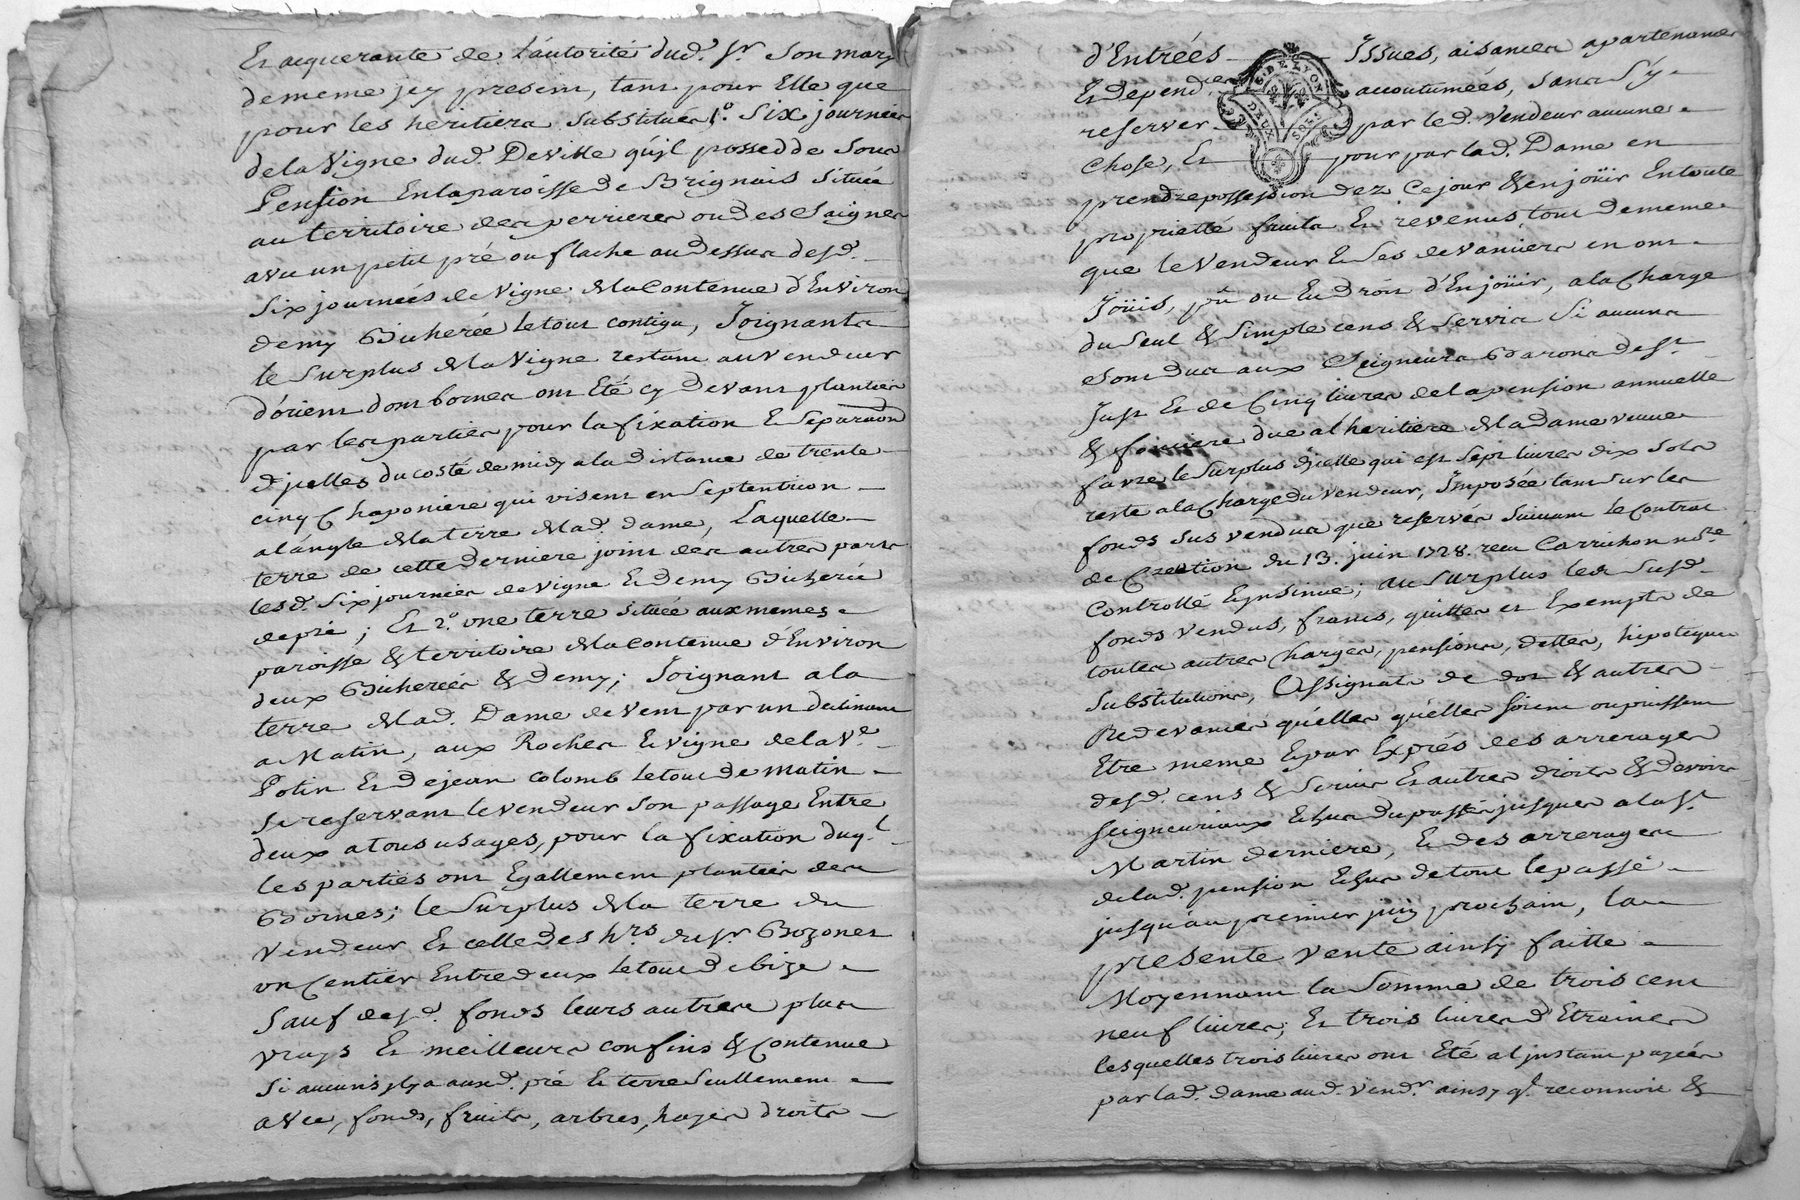 Et acquerante de l'autorité dud. Sr. Son mary
dememe jcy present, tant pour Elle que
pour les heritiers substitués, 1º. Six journées
de la Vigne dud. Deville qu'jl possedde Sous
Pension En la paroisse de Brignais Située
au territoire des perrieres ou des Saignes
avec un petit pré ou flache au dessus desd.
Six journées de Vigne de la Contenue d'Environ
demy Bicherée le tout contigu, Joignants
le Surplus de la Vigne restant au Vendeur
d'orient dont bornes ont Eté cy devant plantées
par les parties pour la fixation & Separation
d'jcelles du costé de midy a la distance de trente
cinq Chaponiere qui visent en Septentrion
a l'angle de la terre de lad. dame, Laquelle
terre de cette derniere joint des autres parts
lesd. Six journées de Vigne & demy Bicherée
de pré ; Et 2º. une terre située aux memes
paroisse & territoire de la Contenue d'Environ
deux Bicherées & demy ; Joignant a la
terre de lad. Dame de Vent par un declinant
a Matin, aux Rocher & vigne de la Ve.
Potin Et de jean Colomb le tout de matin
Se reservant le vendeur Son passage Entre
deux a tous usages, pour la fixation duql.
les parties ont Egallement plantées des
Bornes ; le Surplus de la terre du
Vendeur Et celle des hrs. du Sr. Bozonet
un Centier Entre deux le tout de bize
Sauf desd. fonds leurs autres plus
vrays Et meilleurs confins & Contenue
Si aucuns jl y a auxd. pré & terre Seullement
avec, fonds, fruits, arbres, hayes droits
d'Entrées Jssues, aisances apartenances
Et depend.ces accoutumées, sans s'y
reserver par led. Vendeur aucune
Chose, Et pour par lad. Dame en
prendre possession dez Ce jour & en joüir En toute
proprietté fruits Et revenus tout dememe
que le Vendeur & Ses devanciers en ont
Joüis, pû ou Eu droit d'En joüir, a la Charge
du Seul & Simple cens & Servis Si aucuns
Sont dus aux Seigneurs Barons de St.
Just Et de Cinq livres de la pension annuelle
& fonciere due a l'heritiere de la dame veuve
favre le Surplus d'jcelle qui est Sept livres dix Sols
reste a la Charge du Vendeur, Jmposée tant sur les
fonds sus vendus que reservés suivant le Contrat
de Creation du 13. juin 1728. reçu Carrichon nore.
Controllé & jnsinué ; au surplus les susd.
fonds vendus, francs, quittes et Exempts de
toutes autres Charges, pensions, dettes, hipoteques
Substitutions, Assignats de dot & autres
Redevances qu'elles qu'elles soient ou puissent
Etre meme & par Exprés des arrerages
desd. cens & Servis Et autres droits & devoirs
seigneuriaux Echus du passé jusques a la St.
Martin derniere, & des arrerages
de lad. pension Echus de tout le passé
jusqu'au premier juin prochain, la
presente Vente ainsy faitte
Moyennant la Somme de trois cent
neuf livres ; Et trois livres d'Etraines
lesquelles trois livres ont Eté a l'jnstant payées
par lad. dame aud. Vendr. ainsy ql. reconnoit &
G. DE LYON
DEUX SOLS